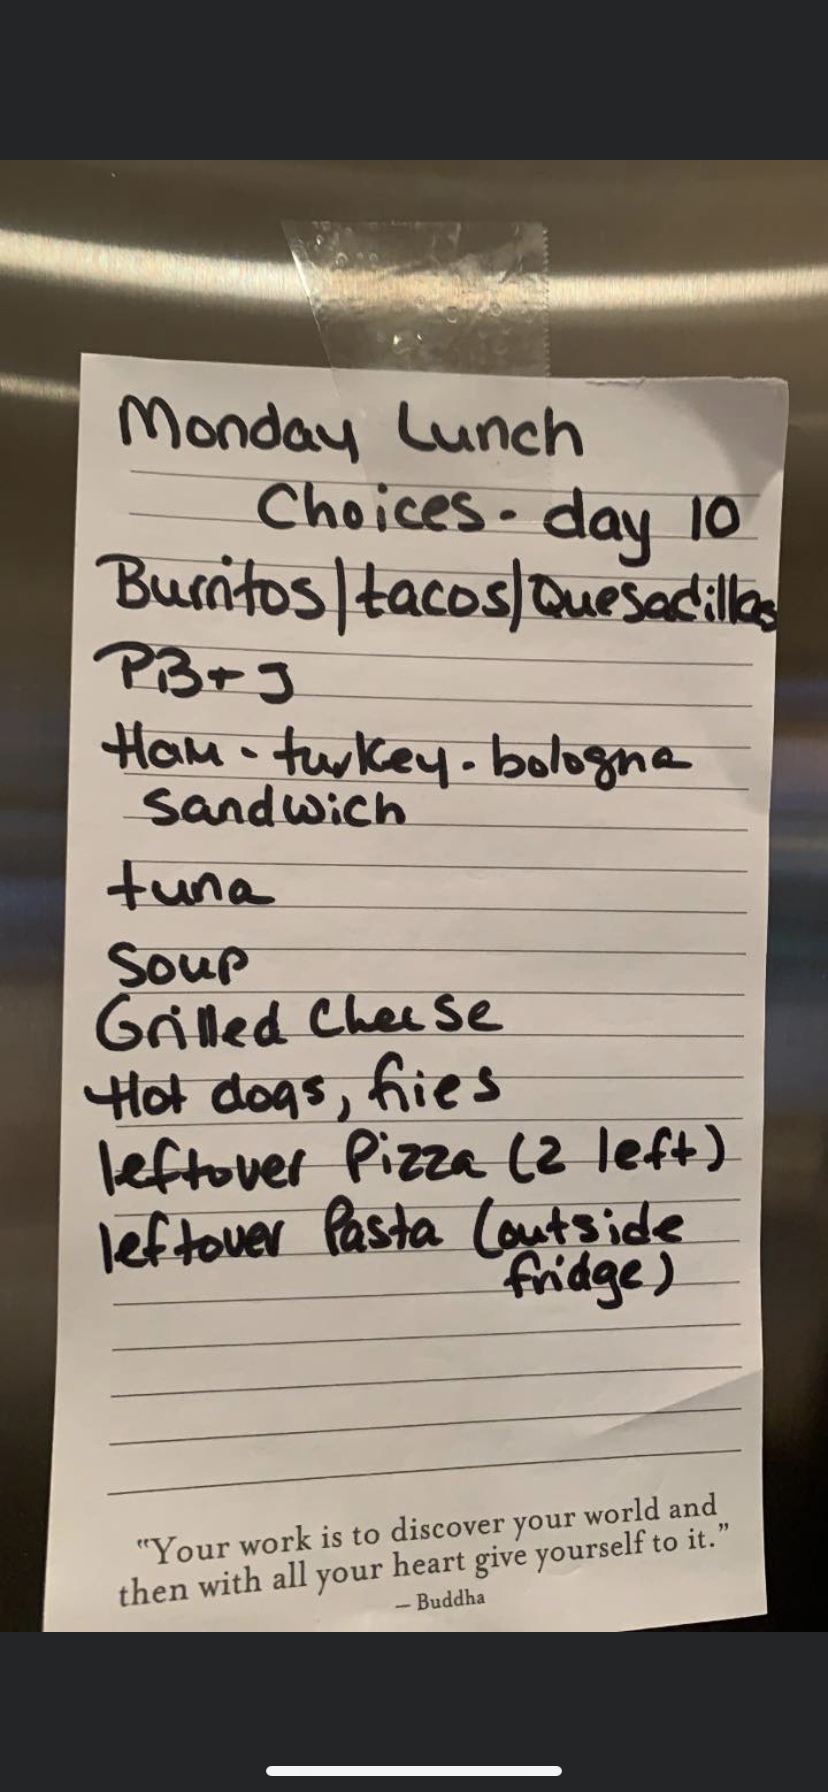 Monday Lunch
Choices - day 10
Burritos/tacos/Quesadillas
PB+J
Ham - turkey - bologna
sandwich
tuna
Soup
Grilled Cheese
Hot dogs, fries
leftover Pizza (2 left)
leftover Pasta (outside
fridge)
"Your work is to discover your world and
then with all your heart give yourself to it."
– Buddha